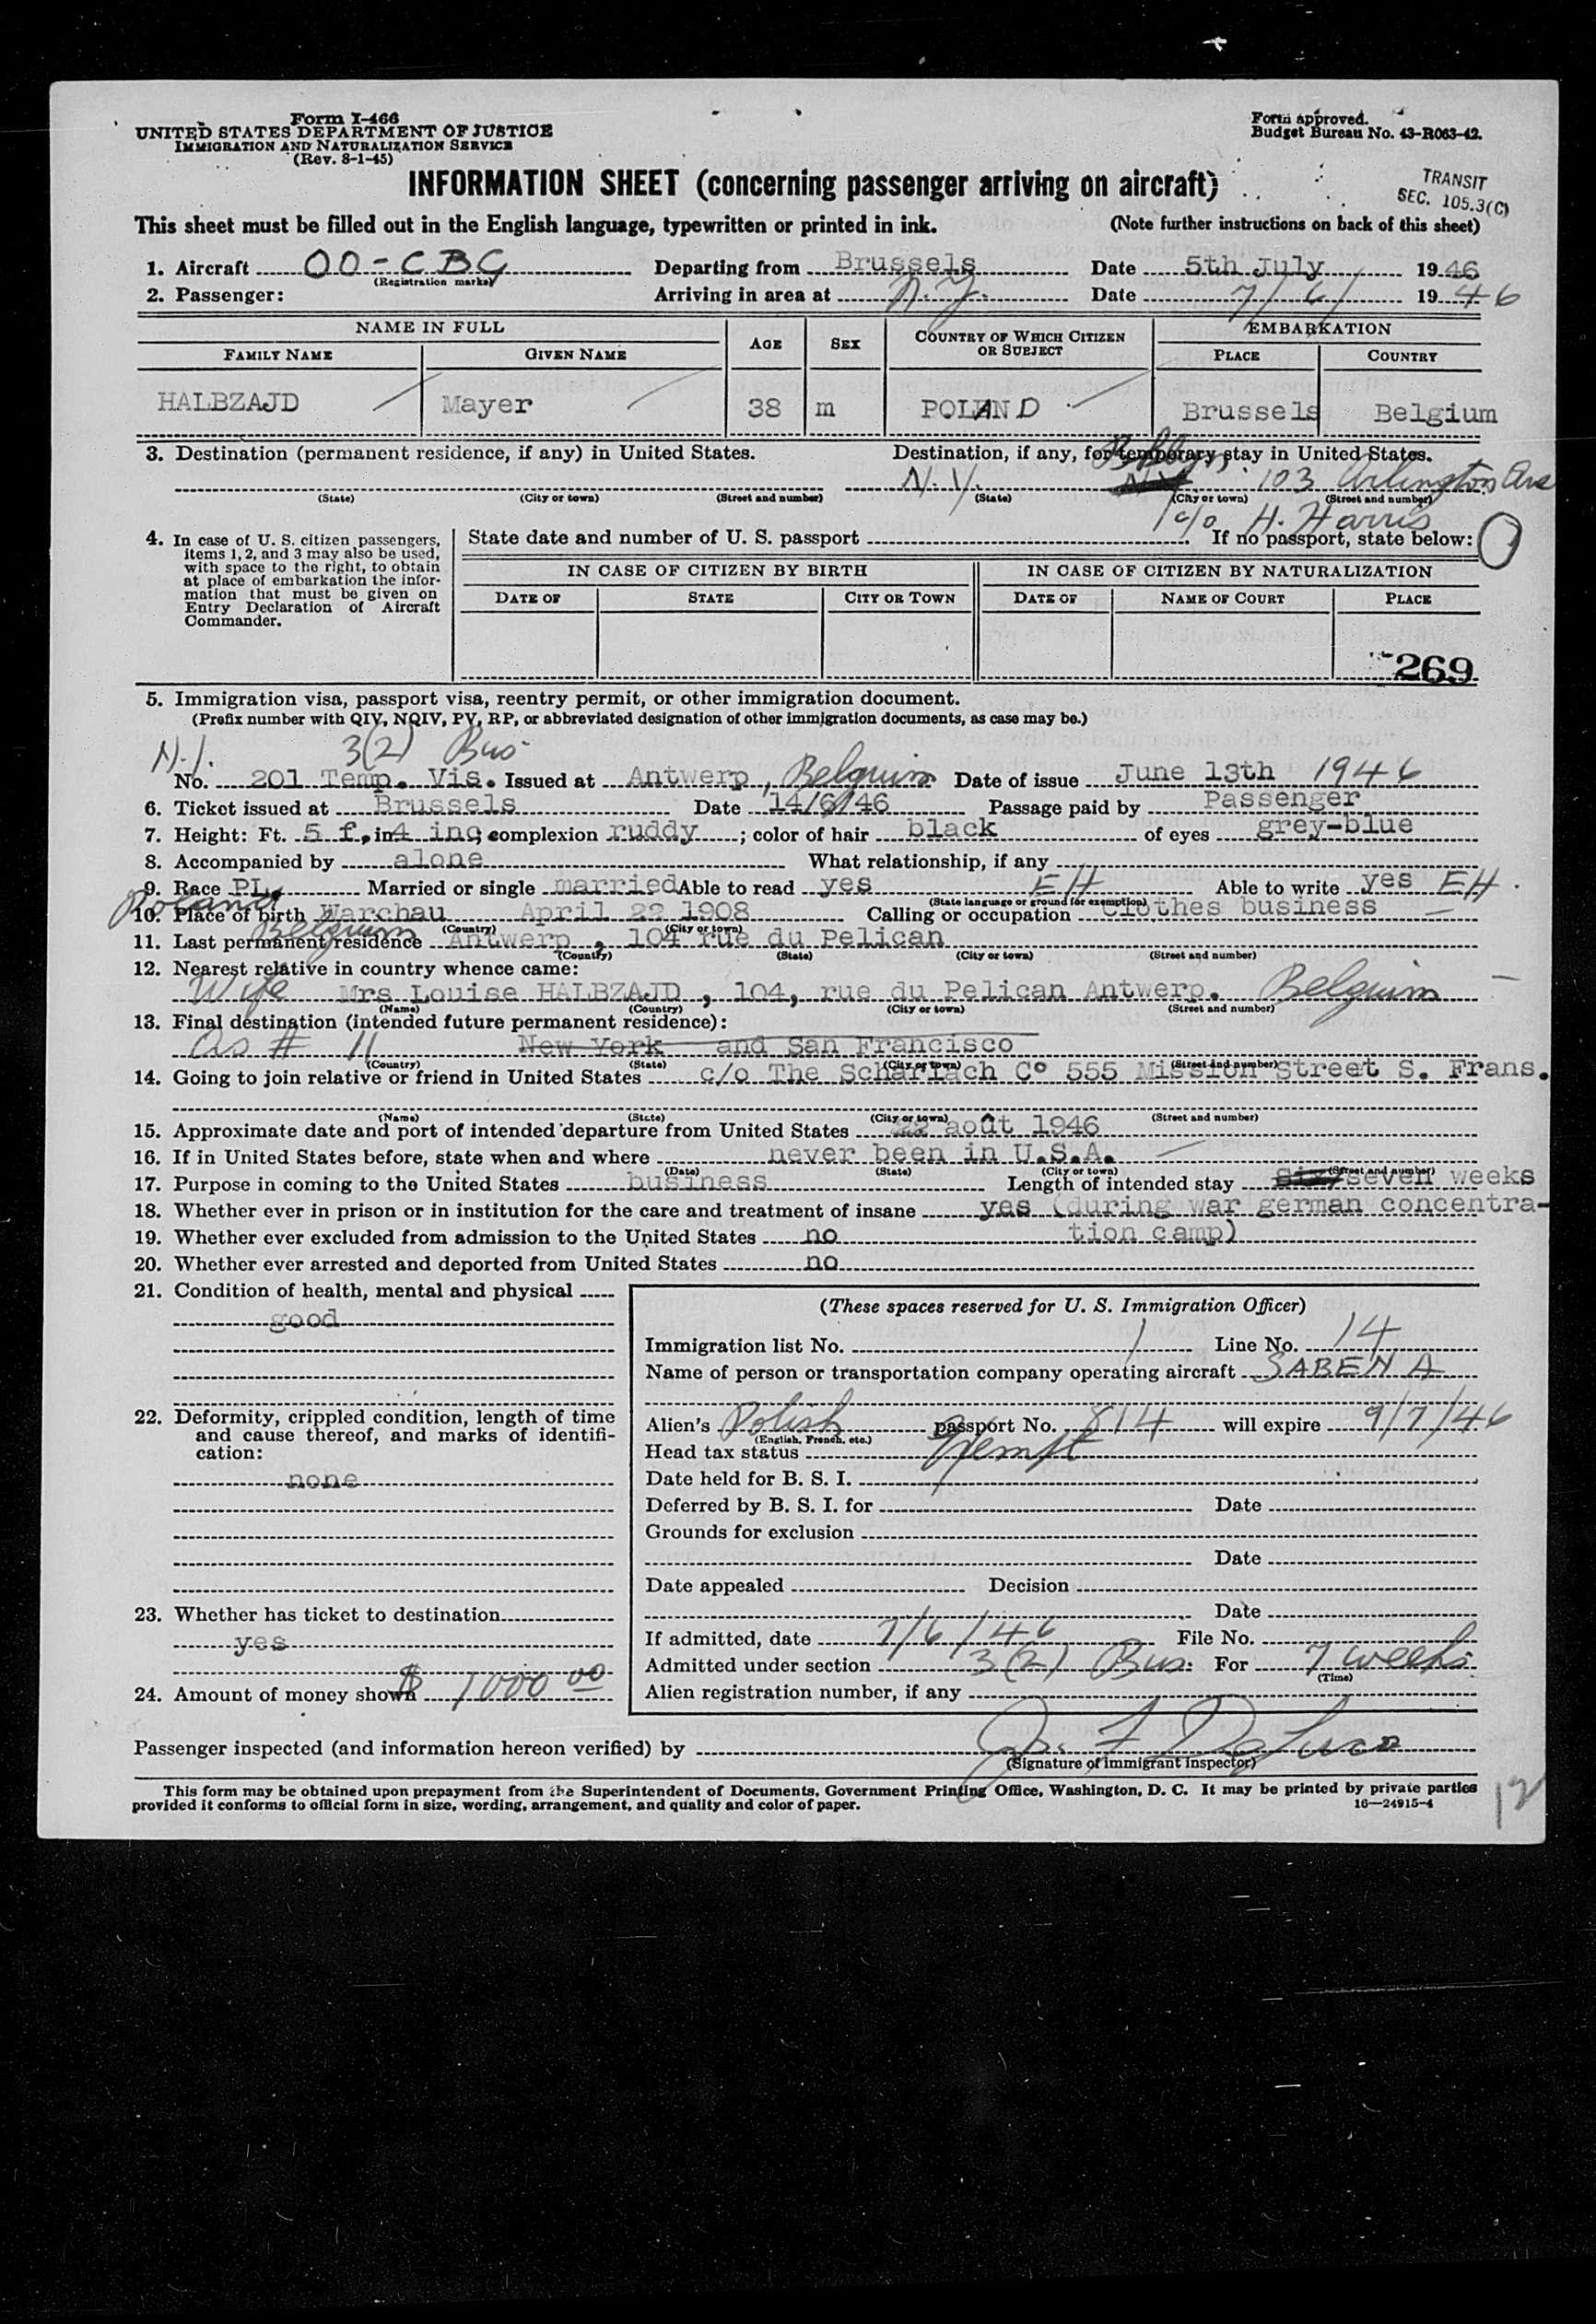 Form I-466
UNITED STATES DEPARTMENT OF JUSTICE
IMMIGRATION AND NATURALIZATION SERVICE
(Rev. 8-1-45)
Form approved.
Budget Bureau No. 43-R063-42.
INFORMATION SHEET (concerning passenger arriving on aircraft)
TRANSIT
SEC. 105.3(C)
This sheet must be filled out in the English language, typewritten or printed in ink. (Note further instructions on back of this sheet)
1. Aircraft OO-CBG Departing from Brussels Date 5th July 1946
(Registration marks)
2. Passenger: Arriving in area at N.Y. Date 7/6/ 1946
NAME IN FULL AGE SEX COUNTRY OF WHICH CITIZEN OR SUBJECT EMBARKATION
FAMILY NAME GIVEN NAME PLACE COUNTRY
HALBZAJD Mayer 38 m POLAND Brussels Belgium
3. Destination (permanent residence, if any) in United States. Destination, if any, for temporary stay in United States.
N.Y. 103 Arlington Ave
(State) (City or town) (Street and number) (State) (City or town) (Street and number)
c/o H. Harris
4. In case of U. S. citizen passengers, items 1, 2, and 3 may also be used, with space to the right, to obtain at place of embarkation the information that must be given on Entry Declaration of Aircraft Commander.
State date and number of U. S. passport If no passport, state below:
IN CASE OF CITIZEN BY BIRTH IN CASE OF CITIZEN BY NATURALIZATION
DATE OF STATE CITY OR TOWN DATE OF NAME OF COURT PLACE
269
5. Immigration visa, passport visa, reentry permit, or other immigration document.
(Prefix number with QIV, NQIV, PV, RP, or abbreviated designation of other immigration documents, as case may be.)
3(2) Bus
No. 201 Temp. Vis. Issued at Antwerp, Belguim Date of issue June 13th 1946
6. Ticket issued at Brussels Date 14/6/46 Passage paid by Passenger
7. Height: Ft. 5 f., in. 4 inc; complexion ruddy; color of hair black of eyes grey-blue
8. Accompanied by alone What relationship, if any
9. Race PL. Married or single married Able to read yes EH Able to write yes EH.
(State language or ground for exemption)
Poland
10. Place of birth Warchau April 22 1908 Calling or occupation Clothes business
(Country) (City or town)
Belguim
11. Last permanent residence Antwerp, 104 rue du Pelican
(Country) (State) (City or town) (Street and number)
12. Nearest relative in country whence came:
Wife Mrs Louise HALBZAJD, 104, rue du Pelican Antwerp. Belguim
(Name) (Country) (City or town) (Street and number)
13. Final destination (intended future permanent residence):
As # 11 New York and San Francisco
(Country) (State) (City or town) (Street and number)
14. Going to join relative or friend in United States c/o The Scharlach C° 555 Mission Street S. Frans.
(Name) (State) (City or town) (Street and number)
15. Approximate date and port of intended departure from United States 22 août 1946
16. If in United States before, state when and where never been in U.S.A.
(Date) (State) (City or town) (Street and number)
17. Purpose in coming to the United States business Length of intended stay seven weeks
18. Whether ever in prison or in institution for the care and treatment of insane yes (during war german concentra-
19. Whether ever excluded from admission to the United States no tion camp)
20. Whether ever arrested and deported from United States no
21. Condition of health, mental and physical
good
22. Deformity, crippled condition, length of time and cause thereof, and marks of identification:
none
23. Whether has ticket to destination
yes
24. Amount of money shown $1000 00
(These spaces reserved for U. S. Immigration Officer)
Immigration list No. 1 Line No. 14
Name of person or transportation company operating aircraft SABENA
Alien's Polish passport No. 814 will expire 9/7/46
(English, French, etc.)
Head tax status Exempt
Date held for B. S. I.
Deferred by B. S. I. for Date
Grounds for exclusion
Date
Date appealed Decision
Date
If admitted, date 7/6/46 File No.
Admitted under section 3(2) Bus. For 7 weeks
(Time)
Alien registration number, if any
Passenger inspected (and information hereon verified) by
(Signature of immigrant inspector)
This form may be obtained upon prepayment from the Superintendent of Documents, Government Printing Office, Washington, D. C. It may be printed by private parties
provided it conforms to official form in size, wording, arrangement, and quality and color of paper. 16—24915-4
12